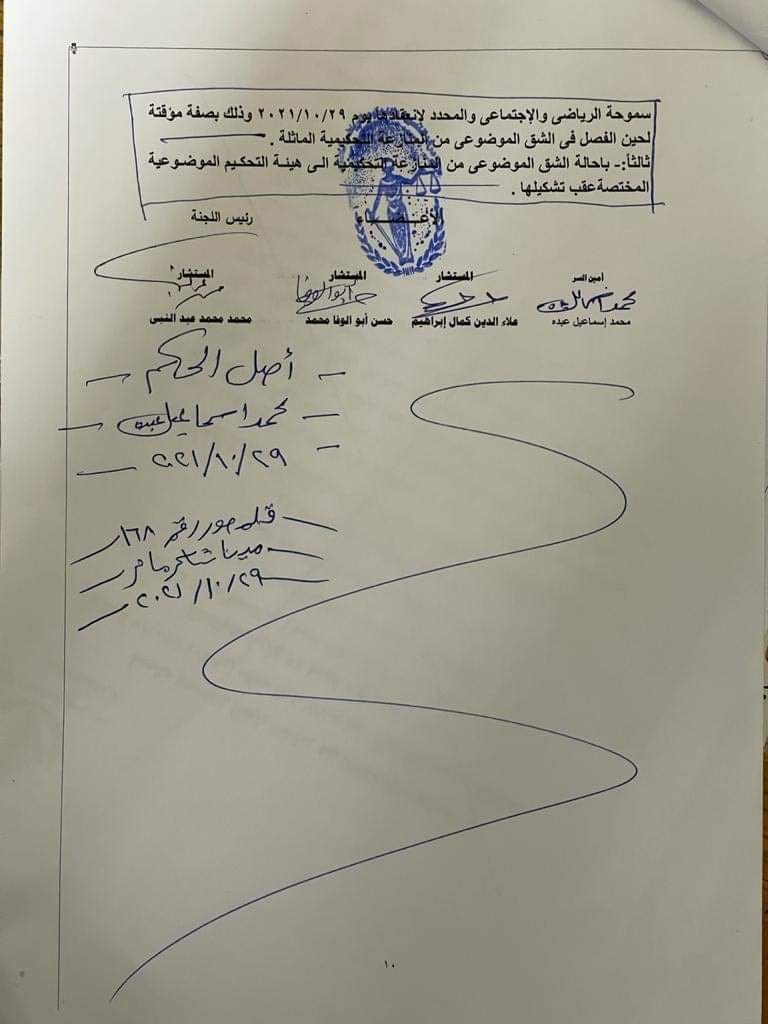 سموحة الرياضى والإجتماعى والمحدد لانعقادها يوم ٢٠٢١/١٠/٢٩ وذلك بصفة مؤقتة
لحين الفصل فى الشق الموضوعى من المنازعة التحكيمية الماثلة .
ثالثاً:- باحالة الشق الموضوعى من المنازعة التحكيمية الـى هيئـة التحكـيم الموضـوعية
المختصة عقب تشكيلها .
الأعـضـــاء رئيس اللجنة
أمين السر المستشار المستشار المستشار
محمد إسماعيل عبده علاء الدين كمال إبراهيم حسن أبو الوفا محمد محمد محمد عبد النبى
أصل الحكم
محمد اسماعيل عبده
٢٠٢١/١٠/٢٩
صور رقم ١٦٨
٢٠٢١/١٠/٢٩
١٠